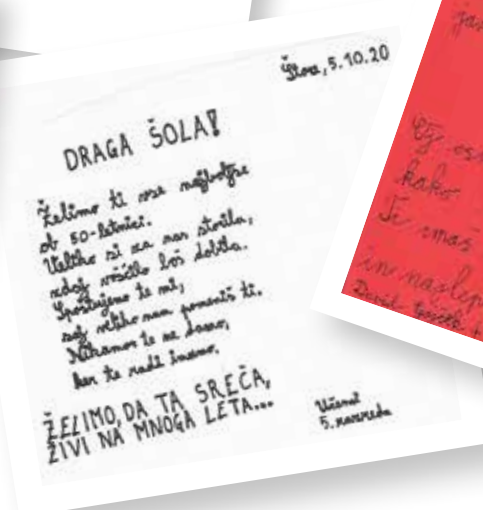 Štore, 5.10.20
DRAGA ŠOLA!
Želimo ti vse najboljše
ob 50-letnici.
Veliko si za nas storila,
zdaj voščilo boš dobila.
Spoštujemo te mi,
saj veliko nam pomeniš ti.
Nikamor te ne damo,
ker te radi imamo.
ŽELIMO, DA TA SREČA,
ŽIVI NA MNOGA LETA...
Učenci
5. razreda
kako
Ti imaš